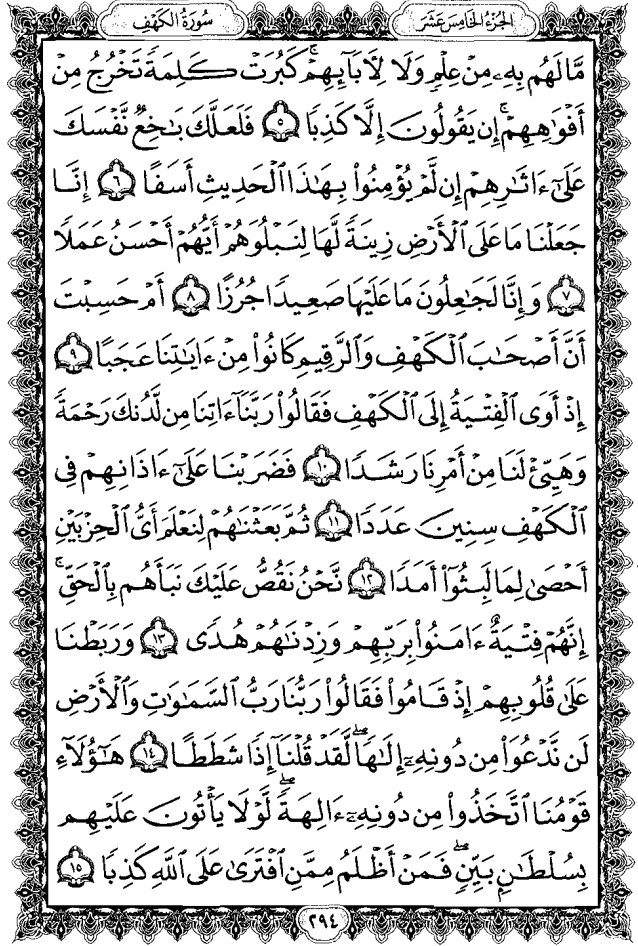 الجزء الخامس عشر سورة الكهف
مَّا لَهُم بِهِۦ مِنْ عِلْمٍ وَلَا لِأٓبَآئِهِمْۚ كَبُرَتْ كَلِمَةً تَخْرُجُ مِنْ
أَفْوَٰهِهِمْۚ إِن يَقُولُونَ إِلَّا كَذِبًا ٥ فَلَعَلَّكَ بَٰخِعٌ نَّفْسَكَ
عَلَىٰٓ ءَاثَٰرِهِمْ إِن لَّمْ يُؤْمِنُوا۟ بِهَٰذَا ٱلْحَدِيثِ أَسَفًا ٦ إِنَّا
جَعَلْنَا مَا عَلَى ٱلْأَرْضِ زِينَةً لَّهَا لِنَبْلُوَهُمْ أَيُّهُمْ أَحْسَنُ عَمَلًا
٧ وَإِنَّا لَجَٰعِلُونَ مَا عَلَيْهَا صَعِيدًا جُرُزًا ٨ أَمْ حَسِبْتَ
أَنَّ أَصْحَٰبَ ٱلْكَهْفِ وَٱلرَّقِيمِ كَانُوا۟ مِنْ ءَايَٰتِنَا عَجَبًا ٩
إِذْ أَوَى ٱلْفِتْيَةُ إِلَى ٱلْكَهْفِ فَقَالُوا۟ رَبَّنَآ ءَاتِنَا مِن لَّدُنكَ رَحْمَةً
وَهَيِّئْ لَنَا مِنْ أَمْرِنَا رَشَدًا ١٠ فَضَرَبْنَا عَلَىٰٓ ءَاذَانِهِمْ فِى
ٱلْكَهْفِ سِنِينَ عَدَدًا ١١ ثُمَّ بَعَثْنَٰهُمْ لِنَعْلَمَ أَىُّ ٱلْحِزْبَيْنِ
أَحْصَىٰ لِمَا لَبِثُوٓا۟ أَمَدًا ١٢ نَّحْنُ نَقُصُّ عَلَيْكَ نَبَأَهُم بِٱلْحَقِّۚ
إِنَّهُمْ فِتْيَةٌ ءَامَنُوا۟ بِرَبِّهِمْ وَزِدْنَٰهُمْ هُدًى ١٣ وَرَبَطْنَا
عَلَىٰ قُلُوبِهِمْ إِذْ قَامُوا۟ فَقَالُوا۟ رَبُّنَا رَبُّ ٱلسَّمَٰوَٰتِ وَٱلْأَرْضِ
لَن نَّدْعُوَا۟ مِن دُونِهِۦٓ إِلَٰهًاۖ لَّقَدْ قُلْنَآ إِذًا شَطَطًا ١٤ هَٰٓؤُلَآءِ
قَوْمُنَا ٱتَّخَذُوا۟ مِن دُونِهِۦٓ ءَالِهَةًۖ لَّوْلَا يَأْتُونَ عَلَيْهِم
بِسُلْطَٰنٍۭ بَيِّنٍۖ فَمَنْ أَظْلَمُ مِمَّنِ ٱفْتَرَىٰ عَلَى ٱللَّهِ كَذِبًا ١٥
٢٩٤